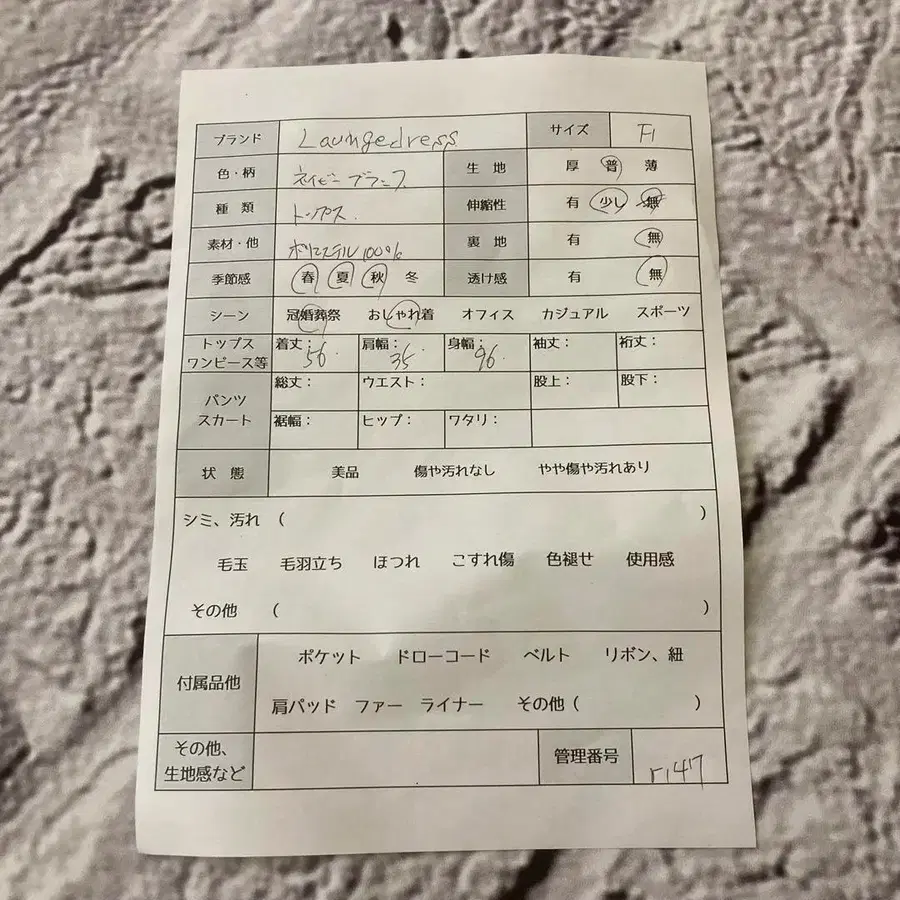 ブランド Loungedress サイズ F1
色・柄 ネイビーブラック 生地 厚 普 薄
種類 トップス. 伸縮性 有 少し 無
素材・他 ポリエステル100% 裏地 有 無
季節感 春 夏 秋 冬 透け感 有 無
シーン 冠婚葬祭 おしゃれ着 オフィス カジュアル スポーツ
トップス ワンピース等 着丈: 56. 肩幅: 35. 身幅: 96. 袖丈: 裄丈:
パンツ スカート 総丈: ウエスト: 股上: 股下:
裾幅: ヒップ: ワタリ:
状態 美品 傷や汚れなし やや傷や汚れあり
シミ、汚れ ( )
毛玉 毛羽立ち ほつれ こすれ傷 色褪せ 使用感
その他 ( )
付属品他 ポケット ドローコード ベルト リボン、紐
肩パッド ファー ライナー その他 ( )
その他、
生地感など 管理番号